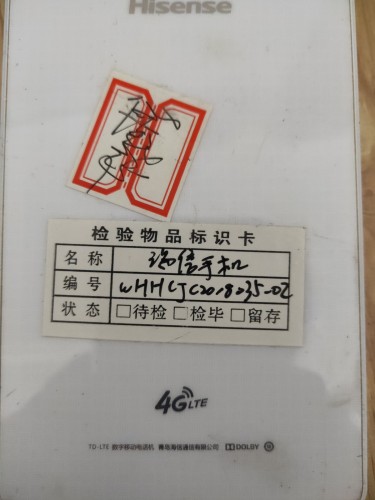 Hisense
检验物品标识卡
名称
编号 WHHCJC2018035-02
状态 □待检 □检毕 □留存
4G LTE
TD-LTE 数字移动电话机 青岛海信通信有限公司 DOLBY